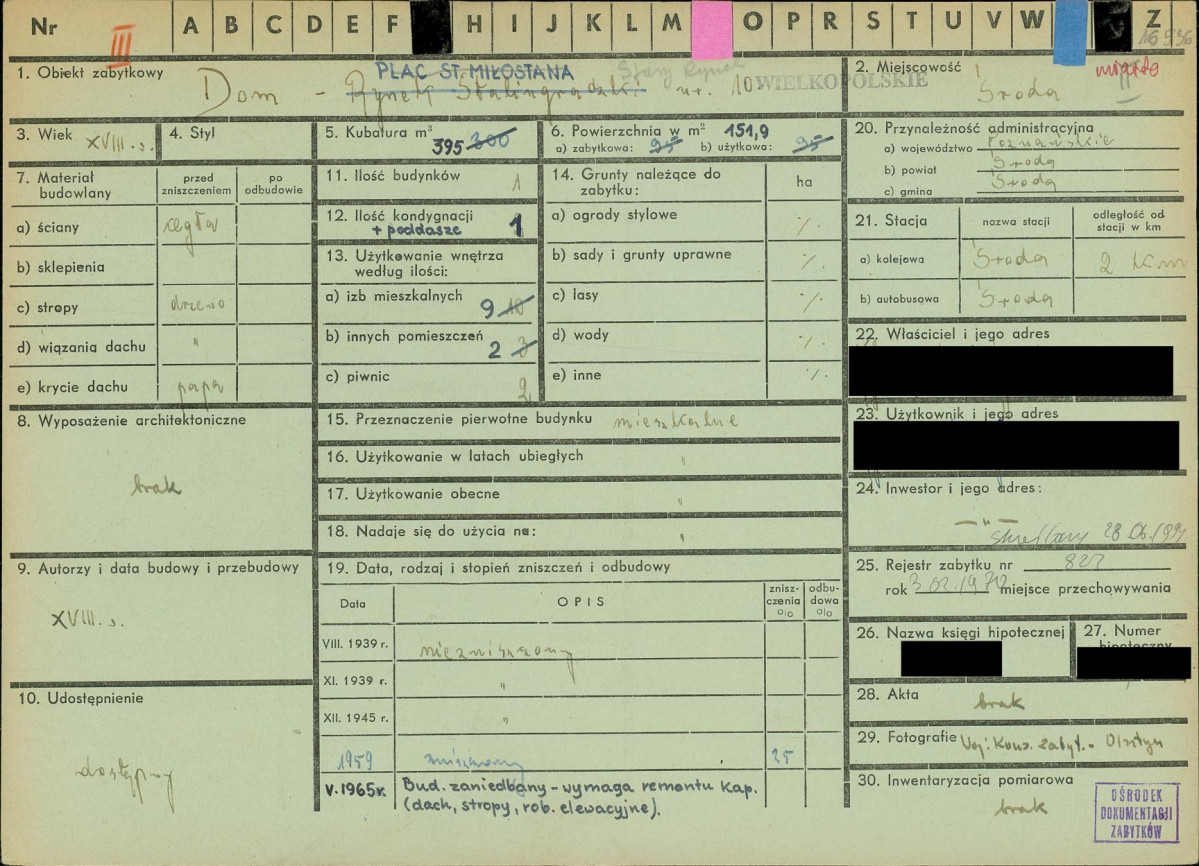 Nr III A B C D E F H I J K L M O P R S T U V W Z
16536
1. Obiekt zabytkowy
PLAC ST. MIŁOSTANA Stary Rynek
Dom - Rynek Stalingradzki nr. 10 WIELKOPOLSKIE
2. Miejscowość miasto
Środa
3. Wiek XVIII. s.
4. Styl
5. Kubatura m³
395 300
6. Powierzchnia w m² 151,9
a) zabytkowa: 95 b) użytkowa: 95
7. Materiał budowlany
przed zniszczeniem
po odbudowie
a) ściany cegła
b) sklepienia
c) stropy drzewo
d) wiązania dachu "
e) krycie dachu papa
8. Wyposażenie architektoniczne
brak
9. Autorzy i data budowy i przebudowy
XVIII. s.
10. Udostępnienie
dostępny
11. Ilość budynków 1
12. Ilość kondygnacji
+ poddasze 1
13. Użytkowanie wnętrza
według ilości:
a) izb mieszkalnych 9 10
b) innych pomieszczeń
2 3
c) piwnic 2
14. Grunty należące do
zabytku: ha
a) ogrody stylowe ./.
b) sady i grunty uprawne ./.
c) lasy ./.
d) wody ./.
e) inne ./.
15. Przeznaczenie pierwotne budynku mieszkalne
16. Użytkowanie w latach ubiegłych "
17. Użytkowanie obecne "
18. Nadaje się do użycia na: "
19. Data, rodzaj i stopień zniszczeń i odbudowy
Data OPIS znisz-czenia o/o odbu-dowa o/o
VIII. 1939 r. niezniszczony
XI. 1939 r. "
XII. 1945 r. "
1959 zniszczony 25
V. 1965r. Bud. zaniedbany - wymaga remontu Kap.
(dach, stropy, rob. elewacyjne).
20. Przynależność administracyjna
a) województwo Poznańskie
b) powiat Środa
c) gmina Środa
21. Stacja nazwa stacji odległość od stacji w km
a) kolejowa Środa 2 km
b) autobusowa Środa
22. Właściciel i jego adres
23. Użytkownik i jego adres
24. Inwestor i jego adres:
- " -
28.06.1991
25. Rejestr zabytku nr 822
rok 3.02.1970 miejsce przechowywania
26. Nazwa księgi hipotecznej
27. Numer
hipoteczny
28. Akta
brak
29. Fotografie Woj. Kons. Zabyt. - Olsztyn
30. Inwentaryzacja pomiarowa
brak
OŚRODEK
DOKUMENTACJI
ZABYTKÓW